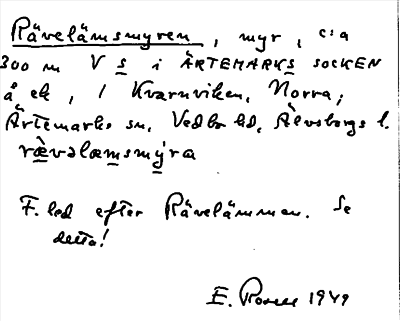 Rävelämsmyren, myr, c:a
300 m V s i ÄRTEMARKS SOCKEN
å ek, 1 Kvarnviken, Norra,
Ärtemarks sn, Vedbo hd, Älvsborgs l.
rævəlæmsmýra
F. led efter Rävelämmen. Se
detta!
E. 1949